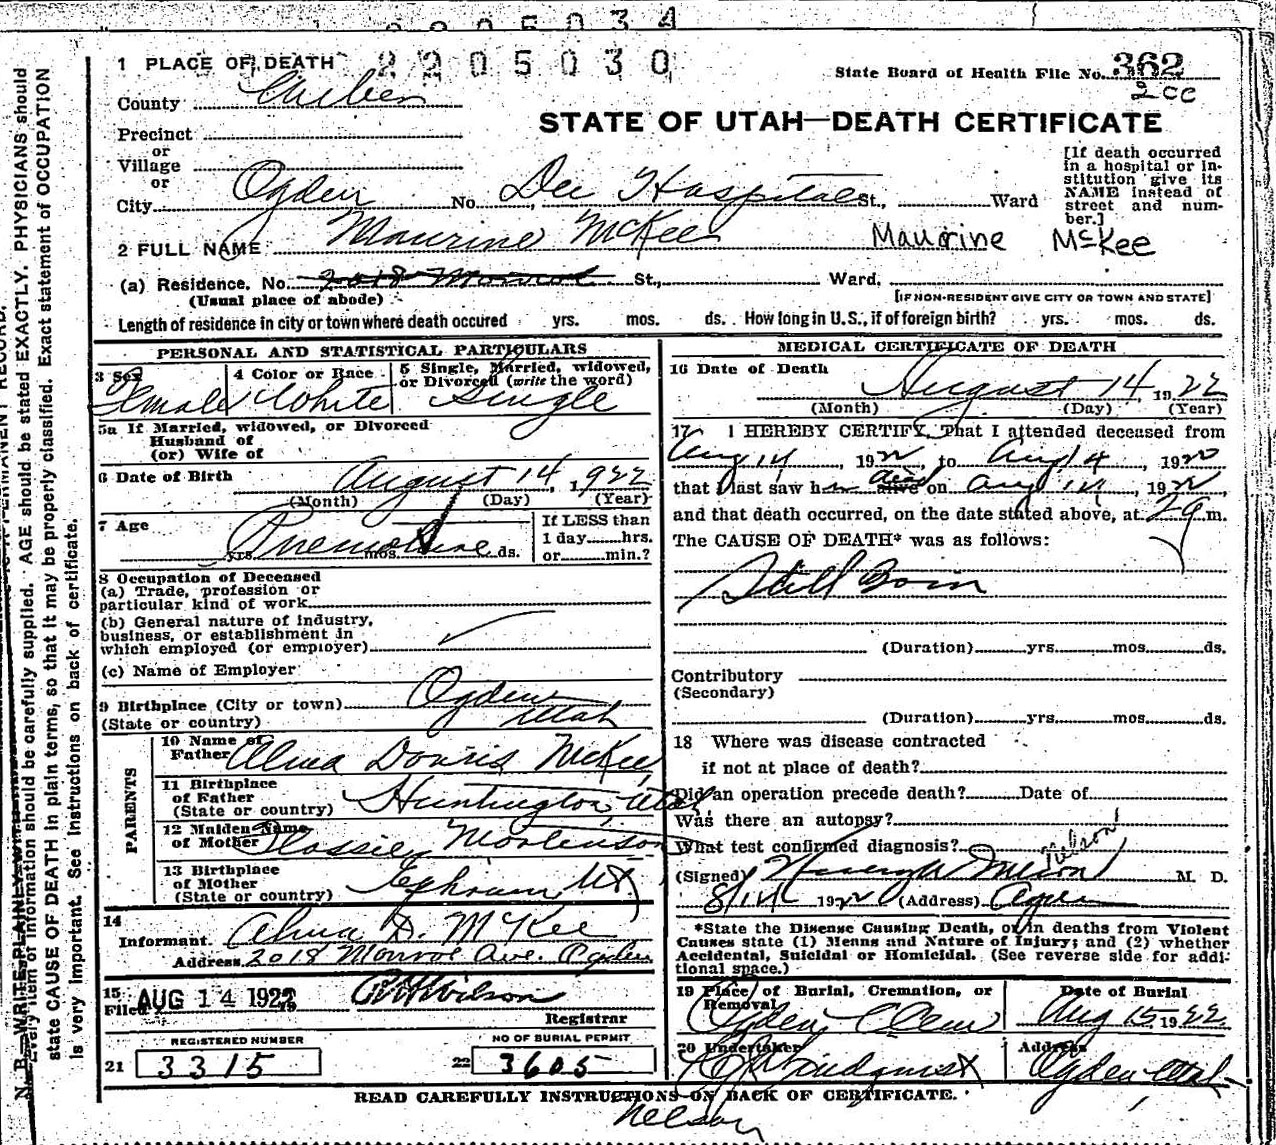 2205034
1 PLACE OF DEATH 2205030
State Board of Health File No. 362
2 cc
County Weber
STATE OF UTAH—DEATH CERTIFICATE
Precinct
or
Village
or
City Ogden No. Dee Hospital St., Ward
[If death occurred in a hospital or institution give its NAME instead of street and number.]
2 FULL NAME Maurine McKee Maurine McKee
(a) Residence. No. 2018 Monroe St., Ward.
(Usual place of abode)
[IF NON-RESIDENT GIVE CITY OR TOWN AND STATE]
Length of residence in city or town where death occured yrs. mos. ds. How long in U.S., if of foreign birth? yrs. mos. ds.
PERSONAL AND STATISTICAL PARTICULARS
3 Sex Female
4 Color or Race White
5 Single, Married, widowed, or Divorced (write the word) Single
5a If Married, widowed, or Divorced
Husband of
(or) Wife of
6 Date of Birth August 14, 1922
(Month) (Day) (Year)
7 Age Premature
yrs. mos. ds.
If LESS than
1 day hrs.
or min.?
8 Occupation of Deceased
(a) Trade, profession or
particular kind of work
(b) General nature of industry,
business, or establishment in
which employed (or employer)
(c) Name of Employer
9 Birthplace (City or town) Ogden
(State or country) Utah
PARENTS
10 Name of Father Alma Dorris McKee
11 Birthplace of Father (State or country) Huntington, Utah
12 Maiden Name of Mother Flossie Mortenson
13 Birthplace of Mother (State or country) Ephraim Ut
14
Informant. Alma D. McKee
Address. 2018 Monroe Ave. Ogden
15
Filed AUG 14 1922 Wilson
Registrar
REGISTERED NUMBER
21 3315
NO OF BURIAL PERMIT
22 3605
MEDICAL CERTIFICATE OF DEATH
16 Date of Death August 14, 1922
(Month) (Day) (Year)
17 I HEREBY CERTIFY, That I attended deceased from
Aug 14, 1922, to Aug 14, 1922
that I last saw her alive dead on Aug 14, 1922
and that death occurred, on the date stated above, at m.
The CAUSE OF DEATH* was as follows:
Still Born
(Duration) yrs. mos. ds.
Contributory
(Secondary)
(Duration) yrs. mos. ds.
18 Where was disease contracted
if not at place of death?
Did an operation precede death? Date of
Was there an autopsy?
What test confirmed diagnosis?
Nelson
(Signed) Nelson M. D.
8/14 1922 (Address) Ogden
*State the Disease Causing Death, or in deaths from Violent
Causes state (1) Menns and Nature of Injury; and (2) whether
Accidental, Suicidal or Homicidal. (See reverse side for addi-
tional space.)
19 Place of Burial, Cremation, or Removal Ogden Cem
Date of Burial Aug 15, 1922
20 Undertaker Lindquist
Address Ogden Utah
READ CAREFULLY INSTRUCTIONS ON BACK OF CERTIFICATE.
Nelson
N. B.—WRITE PLAINLY
PERMANENT RECORD.
Every item of information should be carefully supplied. AGE should be stated EXACTLY. PHYSICIANS should
state CAUSE OF DEATH in plain terms, so that it may be properly classified. Exact statement of OCCUPATION
is very important. See instructions on back of certificate.